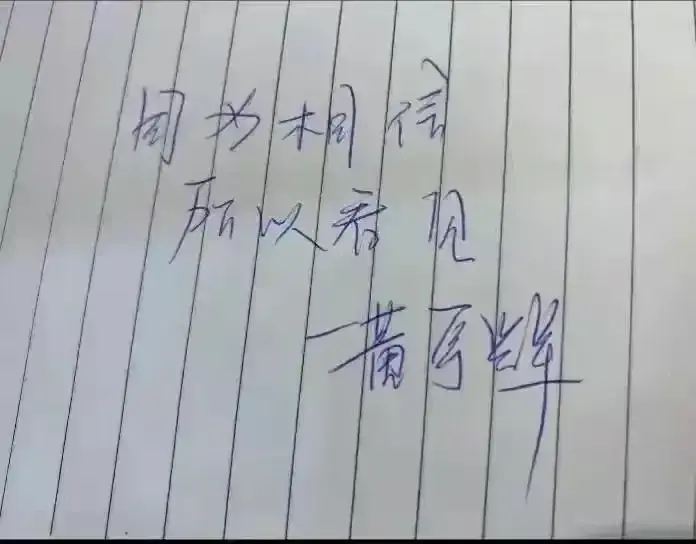 因为相信
所以看见
一黄亨辉